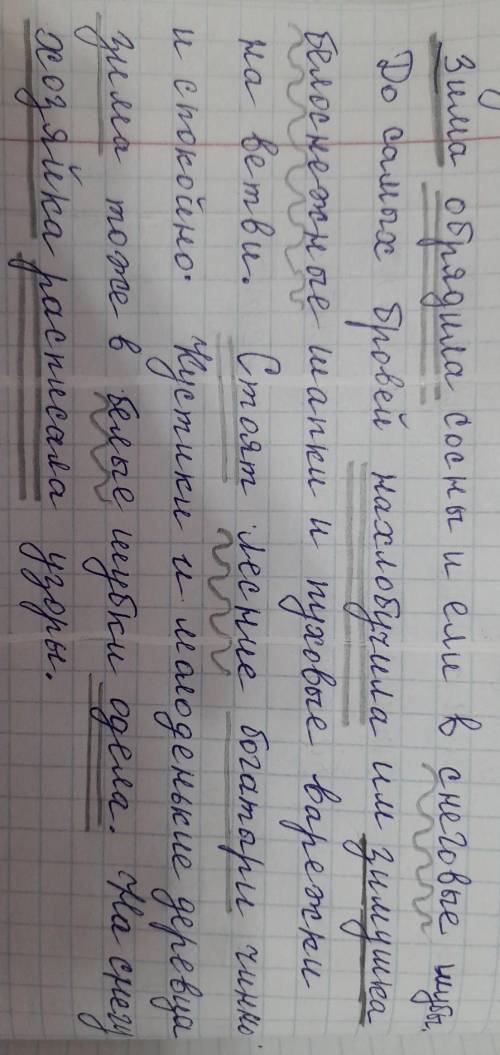 Зима обрядила сосны и ели в снеговые шубы.
До самых бровей нахлобучила им зимушка
белоснежные шапки и пуховые варежки
на ветви. Стоят лесные богатыри чинно
и спокойно. Кустики и молоденькие деревца
зима тоже в белые шубки одела. На снегу
хозяйка расписала узоры.